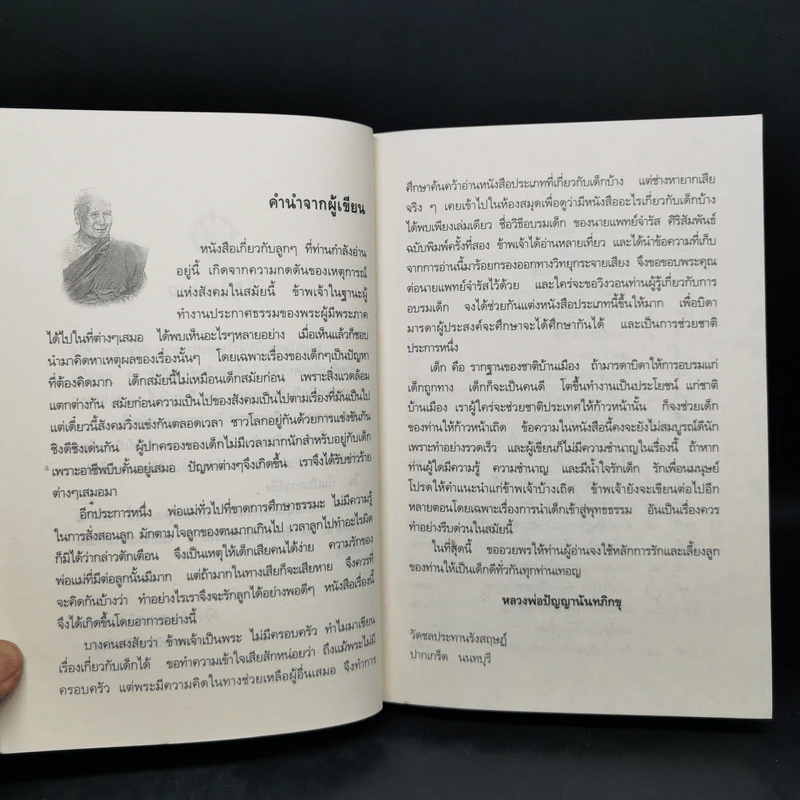 คำนำจากผู้เขียน
หนังสือเกี่ยวกับลูกๆ ที่ท่านกำลังอ่าน
อยู่นี้ เกิดจากความกดดันของเหตุการณ์
แห่งสังคมในสมัยนี้ ข้าพเจ้าในฐานะผู้
ทำงานประกาศธรรมของพระผู้มีพระภาค
ได้ไปในที่ต่างๆเสมอ ได้พบเห็นอะไรๆหลายอย่าง เมื่อเห็นแล้วก็ชอบ
นำมาคิดหาเหตุผลของเรื่องนั้นๆ โดยเฉพาะเรื่องของเด็กๆเป็นปัญหา
ที่ต้องคิดมาก เด็กสมัยนี้ไม่เหมือนเด็กสมัยก่อน เพราะสิ่งแวดล้อม
แตกต่างกัน สมัยก่อนความเป็นไปของสังคมเป็นไปตามเรื่องที่มันเป็นไป
แต่เดี๋ยวนี้สังคมวิ่งแข่งกันตลอดเวลา ชาวโลกอยู่กันด้วยการแข่งขันกัน
ชิงดีชิงเด่นกัน ผู้ปกครองของเด็กไม่มีเวลามากนักสำหรับอยู่กับเด็ก
เพราะอาชีพบีบคั้นอยู่เสมอ ปัญหาต่างๆจึงเกิดขึ้น เราจึงได้รับข่าวร้าย
ต่างๆเสมอมา
อีกประการหนึ่ง พ่อแม่ทั่วไปที่ขาดการศึกษาธรรมะ ไม่มีความรู้
ในการสั่งสอนลูก มักตามใจลูกของตนมากเกินไป เวลาลูกไปทำอะไรผิด
ก็มิได้ว่ากล่าวตักเตือน จึงเป็นเหตุให้เด็กเสียคนได้ง่าย ความรักของ
พ่อแม่ที่มีต่อลูกนั้นมีมาก แต่ถ้ามากในทางเสียก็จะเสียหาย จึงควรที่
จะคิดกันบ้างว่า ทำอย่างไรเราจึงจะรักลูกได้อย่างพอดีๆ หนังสือเรื่องนี้
จึงได้เกิดขึ้นโดยอาการอย่างนี้
บางคนสงสัยว่า ข้าพเจ้าเป็นพระ ไม่มีครอบครัว ทำไมมาเขียน
เรื่องเกี่ยวกับเด็กได้ ขอทำความเข้าใจเสียสักหน่อยว่า ถึงแม้พระไม่มี
ครอบครัว แต่พระมีความคิดในทางช่วยเหลือผู้อื่นเสมอ จึงทำการ
ศึกษาค้นคว้าอ่านหนังสือประเภทที่เกี่ยวกับเด็กบ้าง แต่ช่างหายากเสีย
จริง ๆ เคยเข้าไปในห้องสมุดเพื่อดูว่ามีหนังสืออะไรเกี่ยวกับเด็กบ้าง
ได้พบเพียงเล่มเดียว ชื่อวิธีอบรมเด็ก ของนายแพทย์จำรัส ศิริสัมพันธ์
ฉบับพิมพ์ครั้งที่สอง ข้าพเจ้าได้อ่านหลายเที่ยว และได้นำข้อความที่เก็บ
จากการอ่านนี้มาร้อยกรองออกทางวิทยุกระจายเสียง จึงขอขอบพระคุณ
ต่อนายแพทย์จำรัสไว้ด้วย และใคร่จะขอวิงวอนท่านผู้รู้เกี่ยวกับการ
อบรมเด็ก จงได้ช่วยกันแต่งหนังสือประเภทนี้ขึ้นให้มาก เพื่อบิดา
มารดาผู้ประสงค์จะศึกษาจะได้ศึกษากันได้ และเป็นการช่วยชาติ
ประการหนึ่ง
เด็ก คือ รากฐานของชาติบ้านเมือง ถ้ามารดาบิดาให้การอบรมแก่
เด็กถูกทาง เด็กก็จะเป็นคนดี โตขึ้นทำงานเป็นประโยชน์ แก่ชาติ
บ้านเมือง เราผู้ใคร่จะช่วยชาติประเทศให้ก้าวหน้านั้น ก็จงช่วยเด็ก
ของท่านให้ก้าวหน้าเถิด ข้อความในหนังสือนี้คงจะยังไม่สมบูรณ์ดีนัก
เพราะทำอย่างรวดเร็ว และผู้เขียนก็ไม่มีความชำนาญในเรื่องนี้ ถ้าหาก
ท่านผู้ใดมีความรู้ ความชำนาญ และมีน้ำใจรักเด็ก รักเพื่อนมนุษย์
โปรดให้คำแนะนำแก่ข้าพเจ้าบ้างเถิด ข้าพเจ้ายังจะเขียนต่อไปอีก
หลายตอนโดยเฉพาะเรื่องการนำเด็กเข้าสู่พุทธธรรม อันเป็นเรื่องควร
ทำอย่างรีบด่วนในสมัยนี้
ในที่สุดนี้ ขออวยพรให้ท่านผู้อ่านจงใช้หลักการรักและเลี้ยงลูก
ของท่านให้เป็นเด็กดีทั่วกันทุกท่านเทอญ
หลวงพ่อปัญญานันทภิกขุ
วัดชลประทานรังสฤษฎ์
ปากเกร็ด นนทบุรี